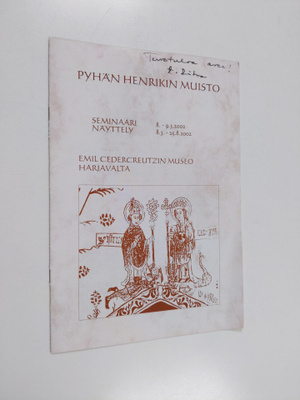 Tervetuloa
PYHÄN HENRIKIN MUISTO
SEMINAARI 8. - 9.5.2002
NÄYTTELY 8.5. - 25.8.2002
EMIL CEDERCREUTZIN MUSEO
HARJAVALTA